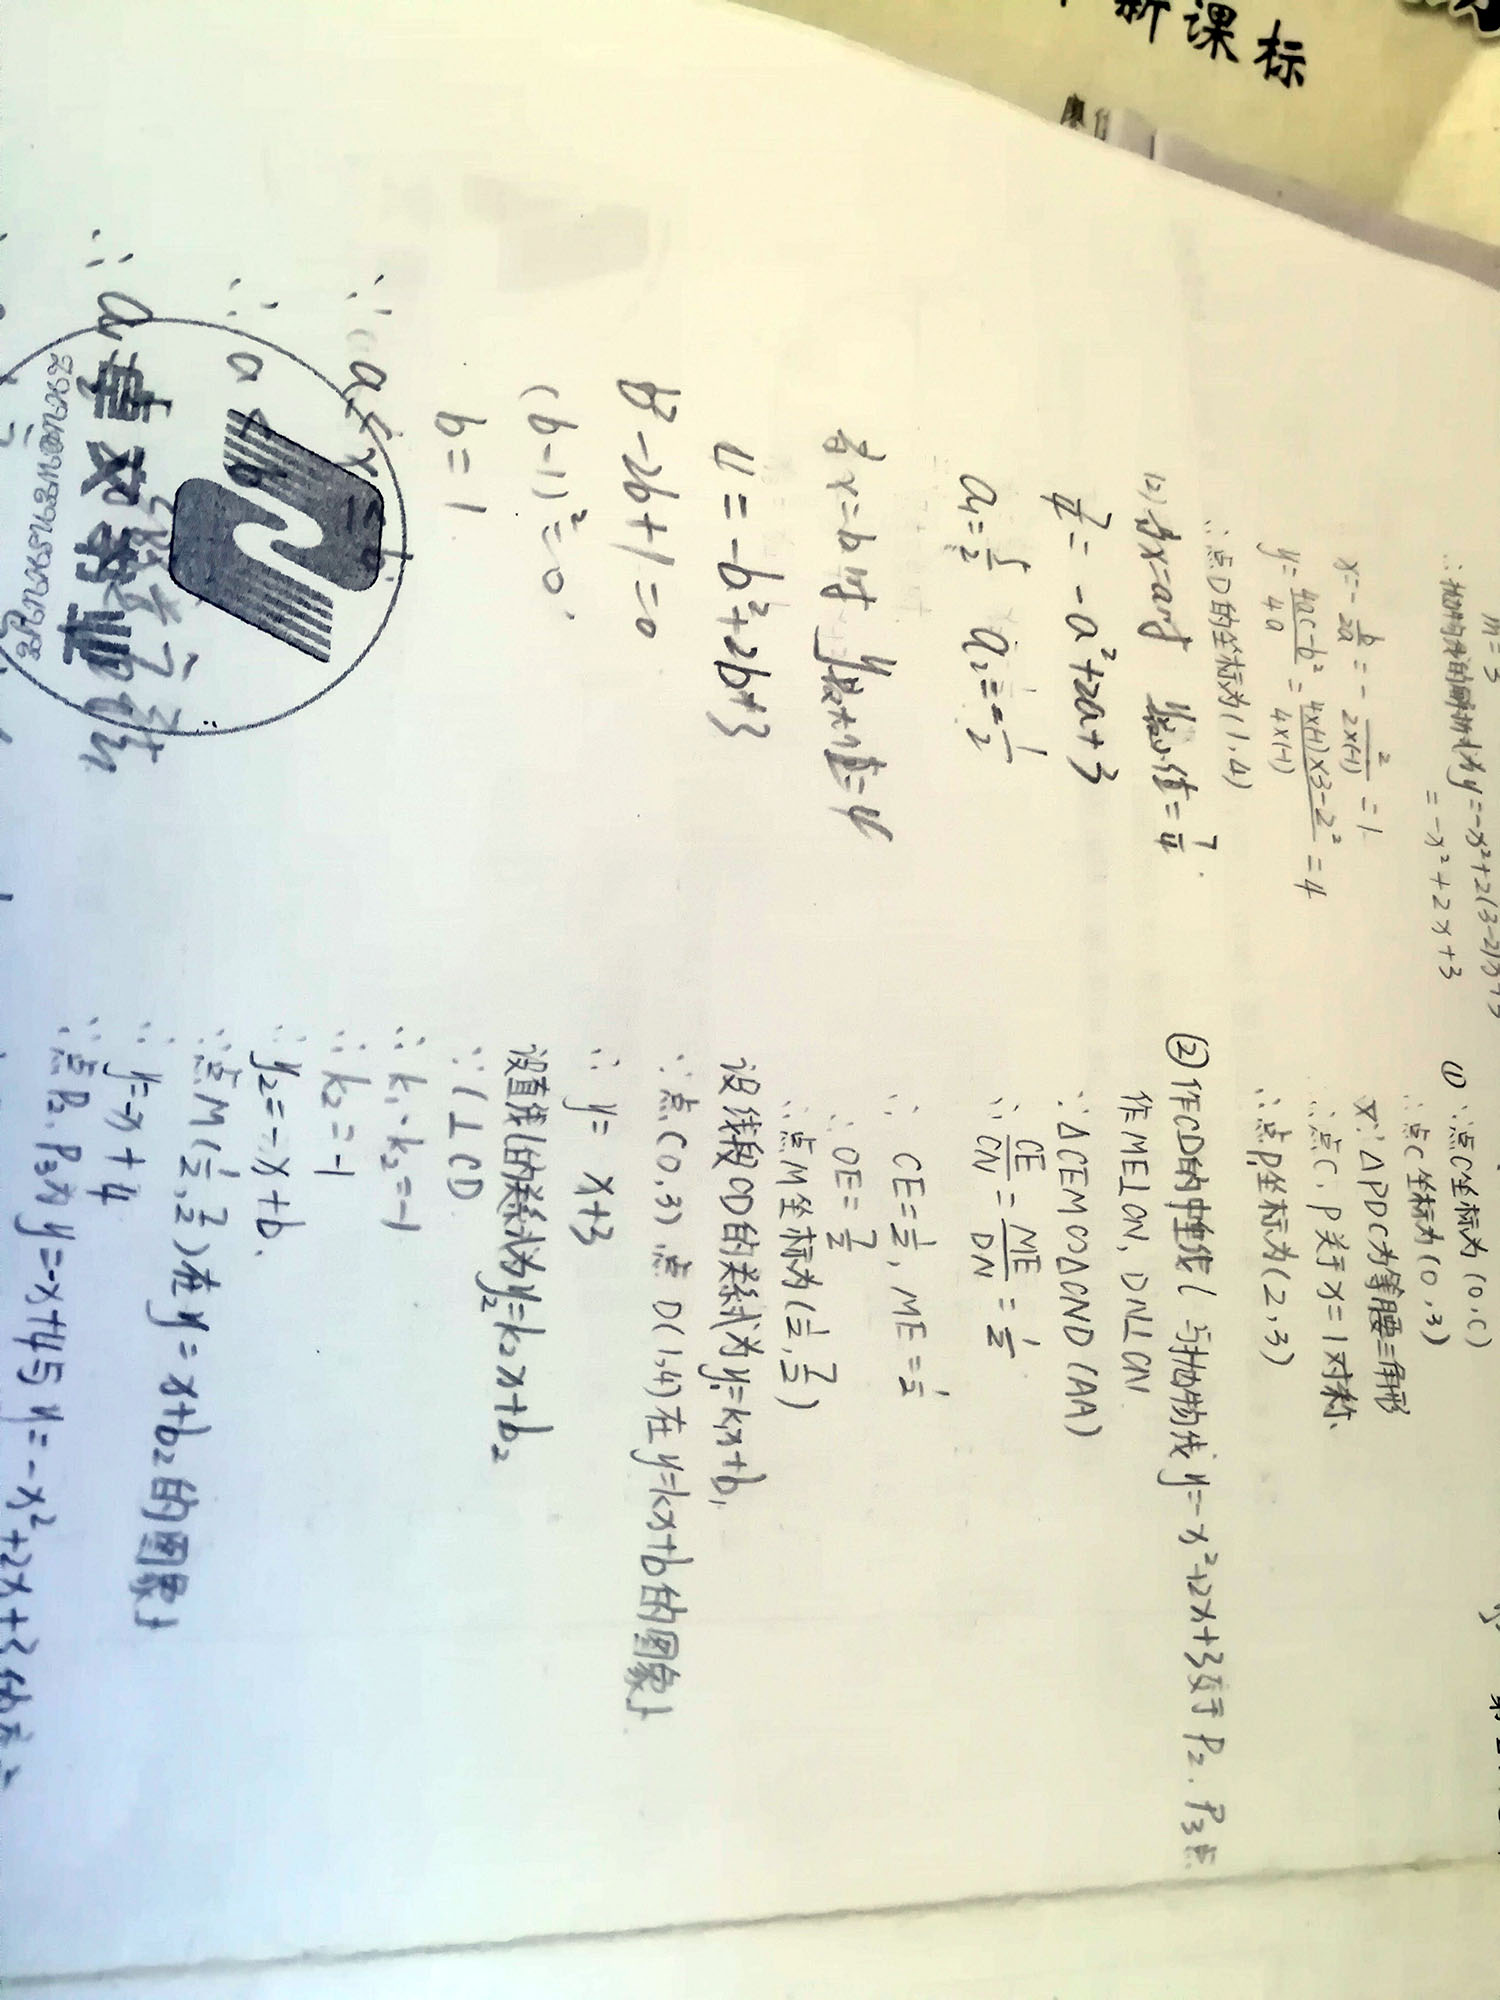 新课标
m=3
∴抛物线的解析式为y=-x²+2(3-2)x+3
=-x²+2x+3
x=-b/2a=-2/2×(-1)=1
y=4ac-b²/4a=4×(-1)×3-2²/4×(-1)=4
∴点D的坐标为(1,4)
(2)当x=a时 y最小值=7/4
7/4=-a²+2a+3
a₁=5/2 a₂=-1/2
当x=b时 y最大值=4
4=-b²+2b+3
b²-2b+1=0
(b-1)²=0
b=1
∵a≤x≤b
∴a<b
∴a
① ∵点C坐标为(0,C)
∴点C坐标为(0,3)
又∵△PDC为等腰三角形
∴点C、P关于x=1对称
∴点P₁坐标为(2,3)
②作CD的中垂线l与抛物线y=-x²+2x+3交于P₂、P₃点
作ME⊥CN,DN⊥CN
∴△CEM∽△CND(AA)
∴CE/CN=ME/DN=1/2
∴CE=1/2,ME=1/2
∴OE=7/2
∴点M坐标为(1/2,7/2)
设线段CD的关系式为y₁=k₁x+b₁
∵点C(0,3)点D(1,4)在y=kx+b的图象上
∴y=x+3
设直线l的关系式为y₂=k₂x+b₂
∵l⊥CD
∴k₁·k₂=-1
∴k₂=-1
∴y₂=-x+b
∵点M(1/2,7/2)在y=x+b₂的图象上
∴y=-x+4
∵点P₂、P₃为y=-x+4与y=-x²+2x+3的交点